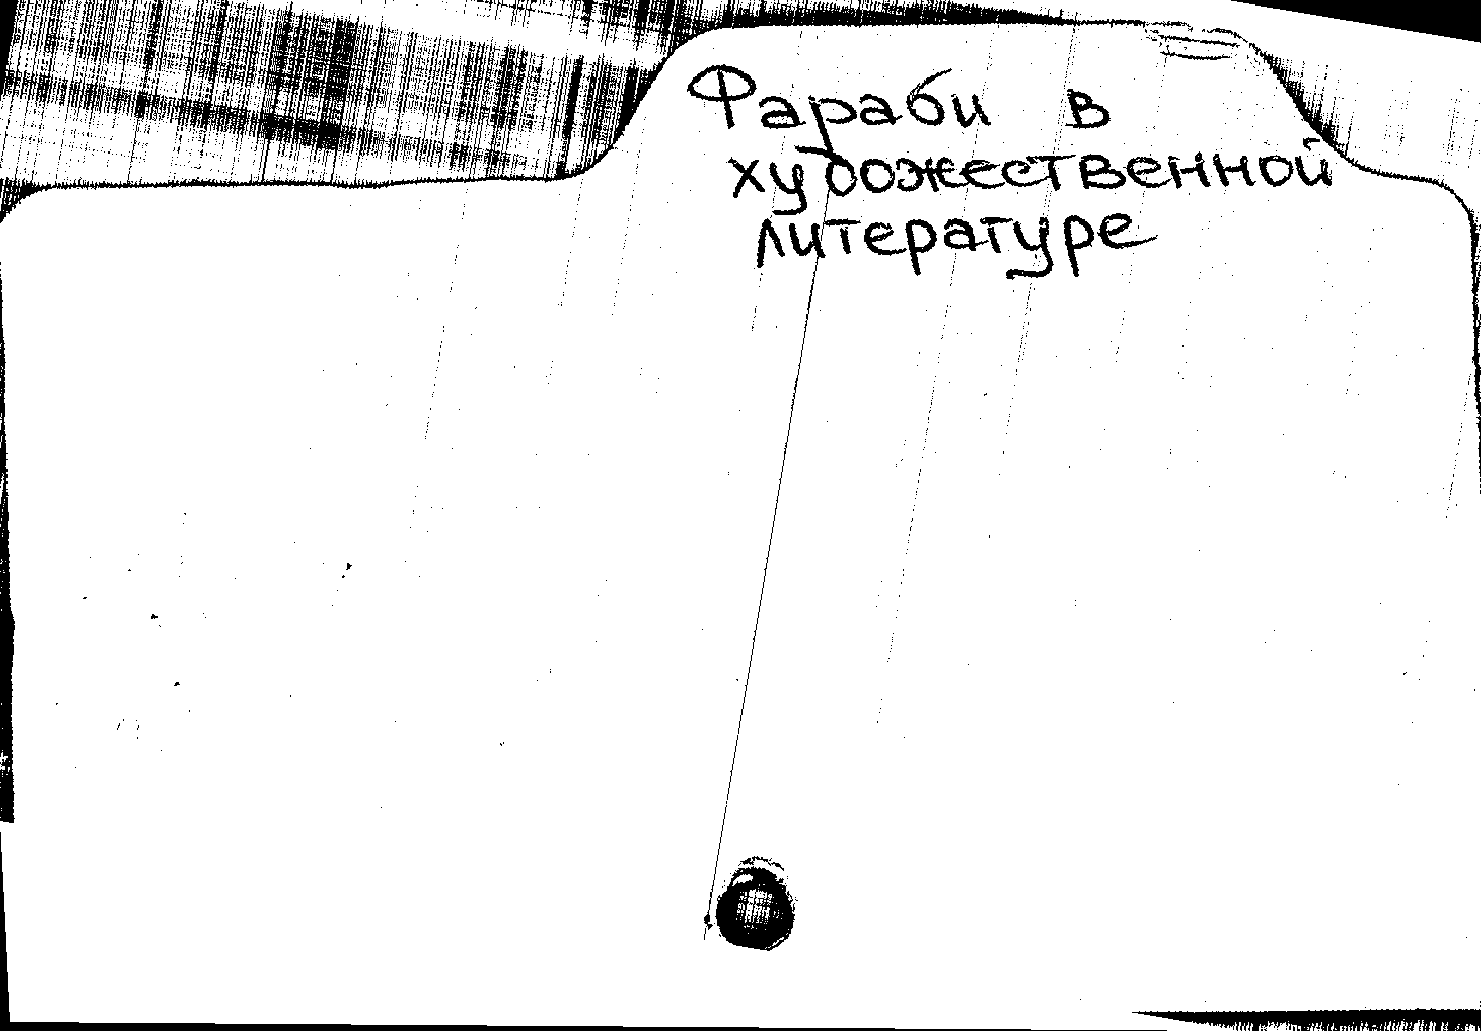 Фараби в
художественной
литературе